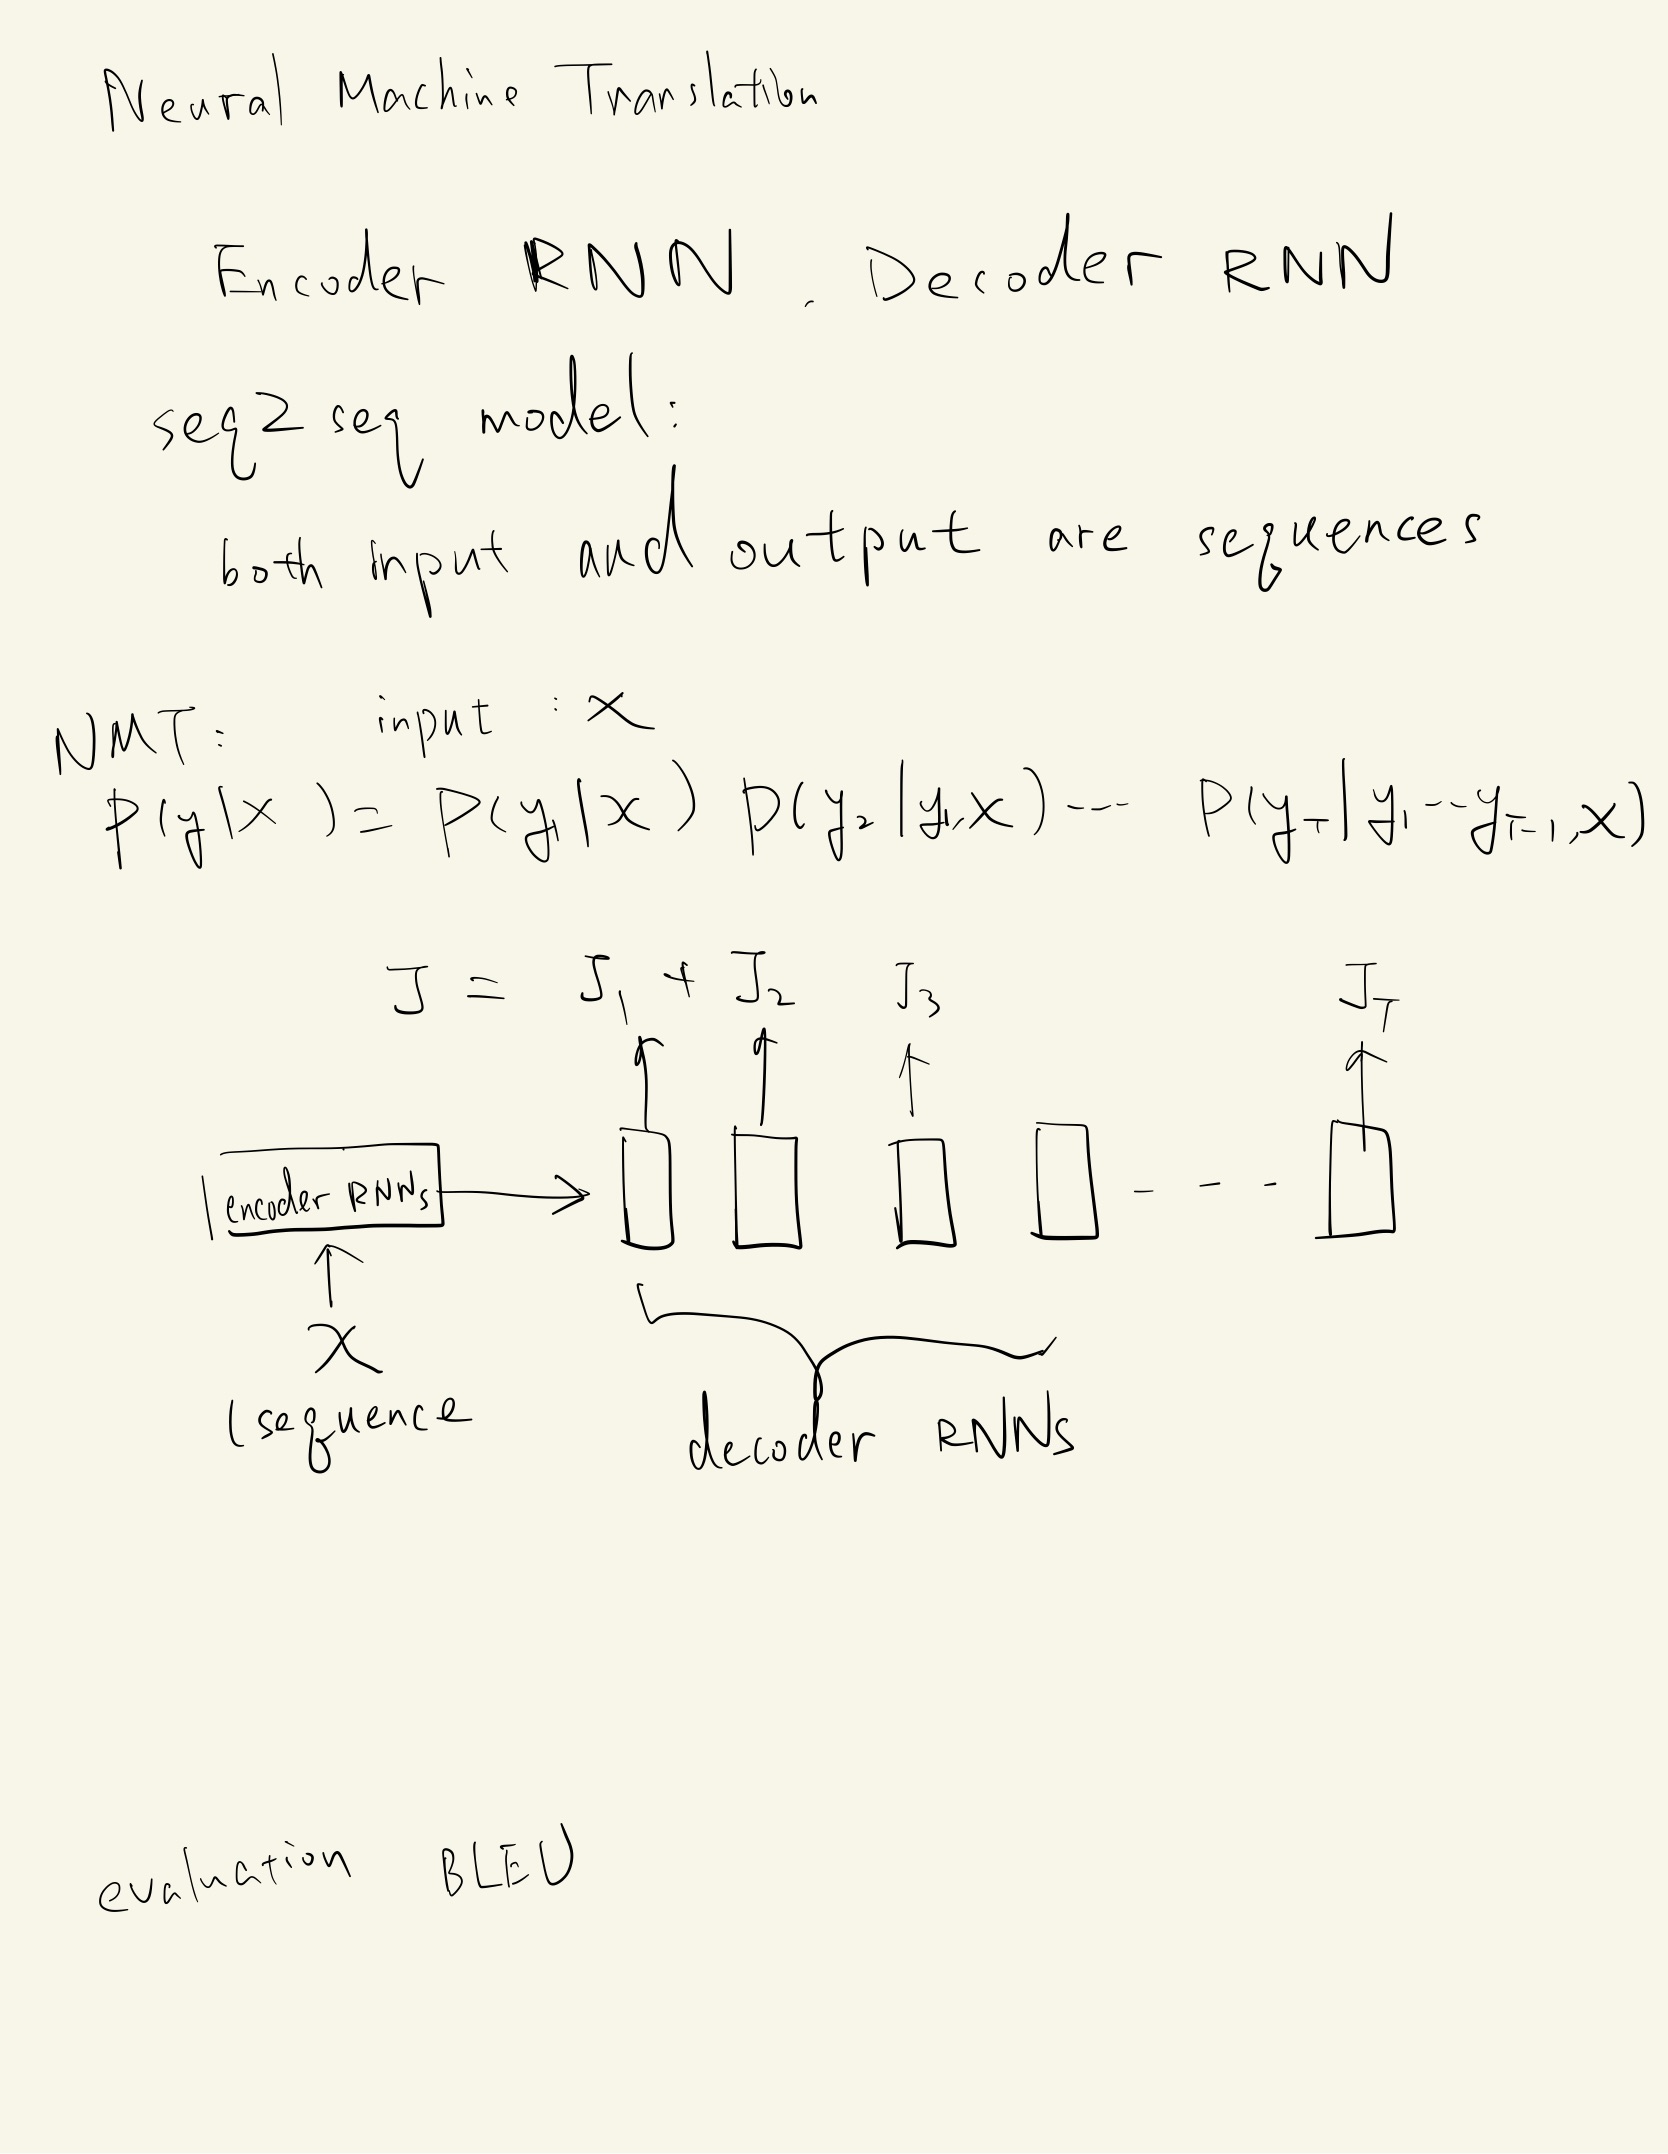 Neural Machine Translation
Encoder RNN . Decoder RNN
seq2seq model:
both input and output are sequences
NMT: input : x
P(y|x) = P(y₁|x) P(y₂|y₁,x) --- P(y_T|y₁--y_{T-1},x)
J = J₁ + J₂ J₃ J_T
encoder RNNs - - -
x
(sequence
decoder RNNs
evaluation BLEU